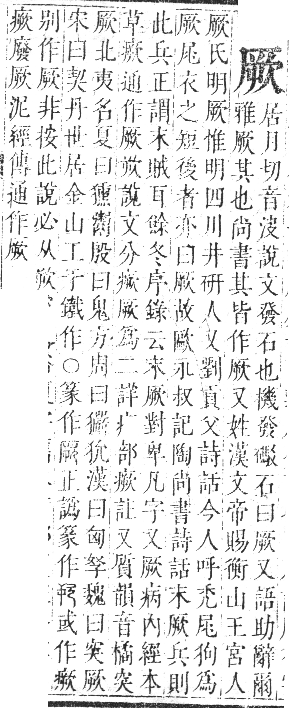 厥
居月切音決說文發石也機發礮石曰厥又語助辭爾
雅厥其也尚書其皆作厥又姓漢文帝賜衡山王宮人
厥氏明厥惟明四川井研人又劉貢父詩話今人呼禿尾狗爲
厥尾衣之短後者亦曰厥故歐永叔記陶尚書詩話末厥兵則
此兵正謂末賊耳餘冬序錄云末厥對卑凡字又厥病內經本
草瘚通作厥欮說文分瘚厥爲二詳疒部瘚註又質韻音橘突
厥北夷名夏曰獯鬻殷曰鬼方周曰玁狁漢曰匈拏魏曰突厥
宋曰契丹世居金山工于鐵作○篆作厥正譌篆作或作瘚
别作厥非按此說必从欮
瘚廢厥泥經傳通作厥